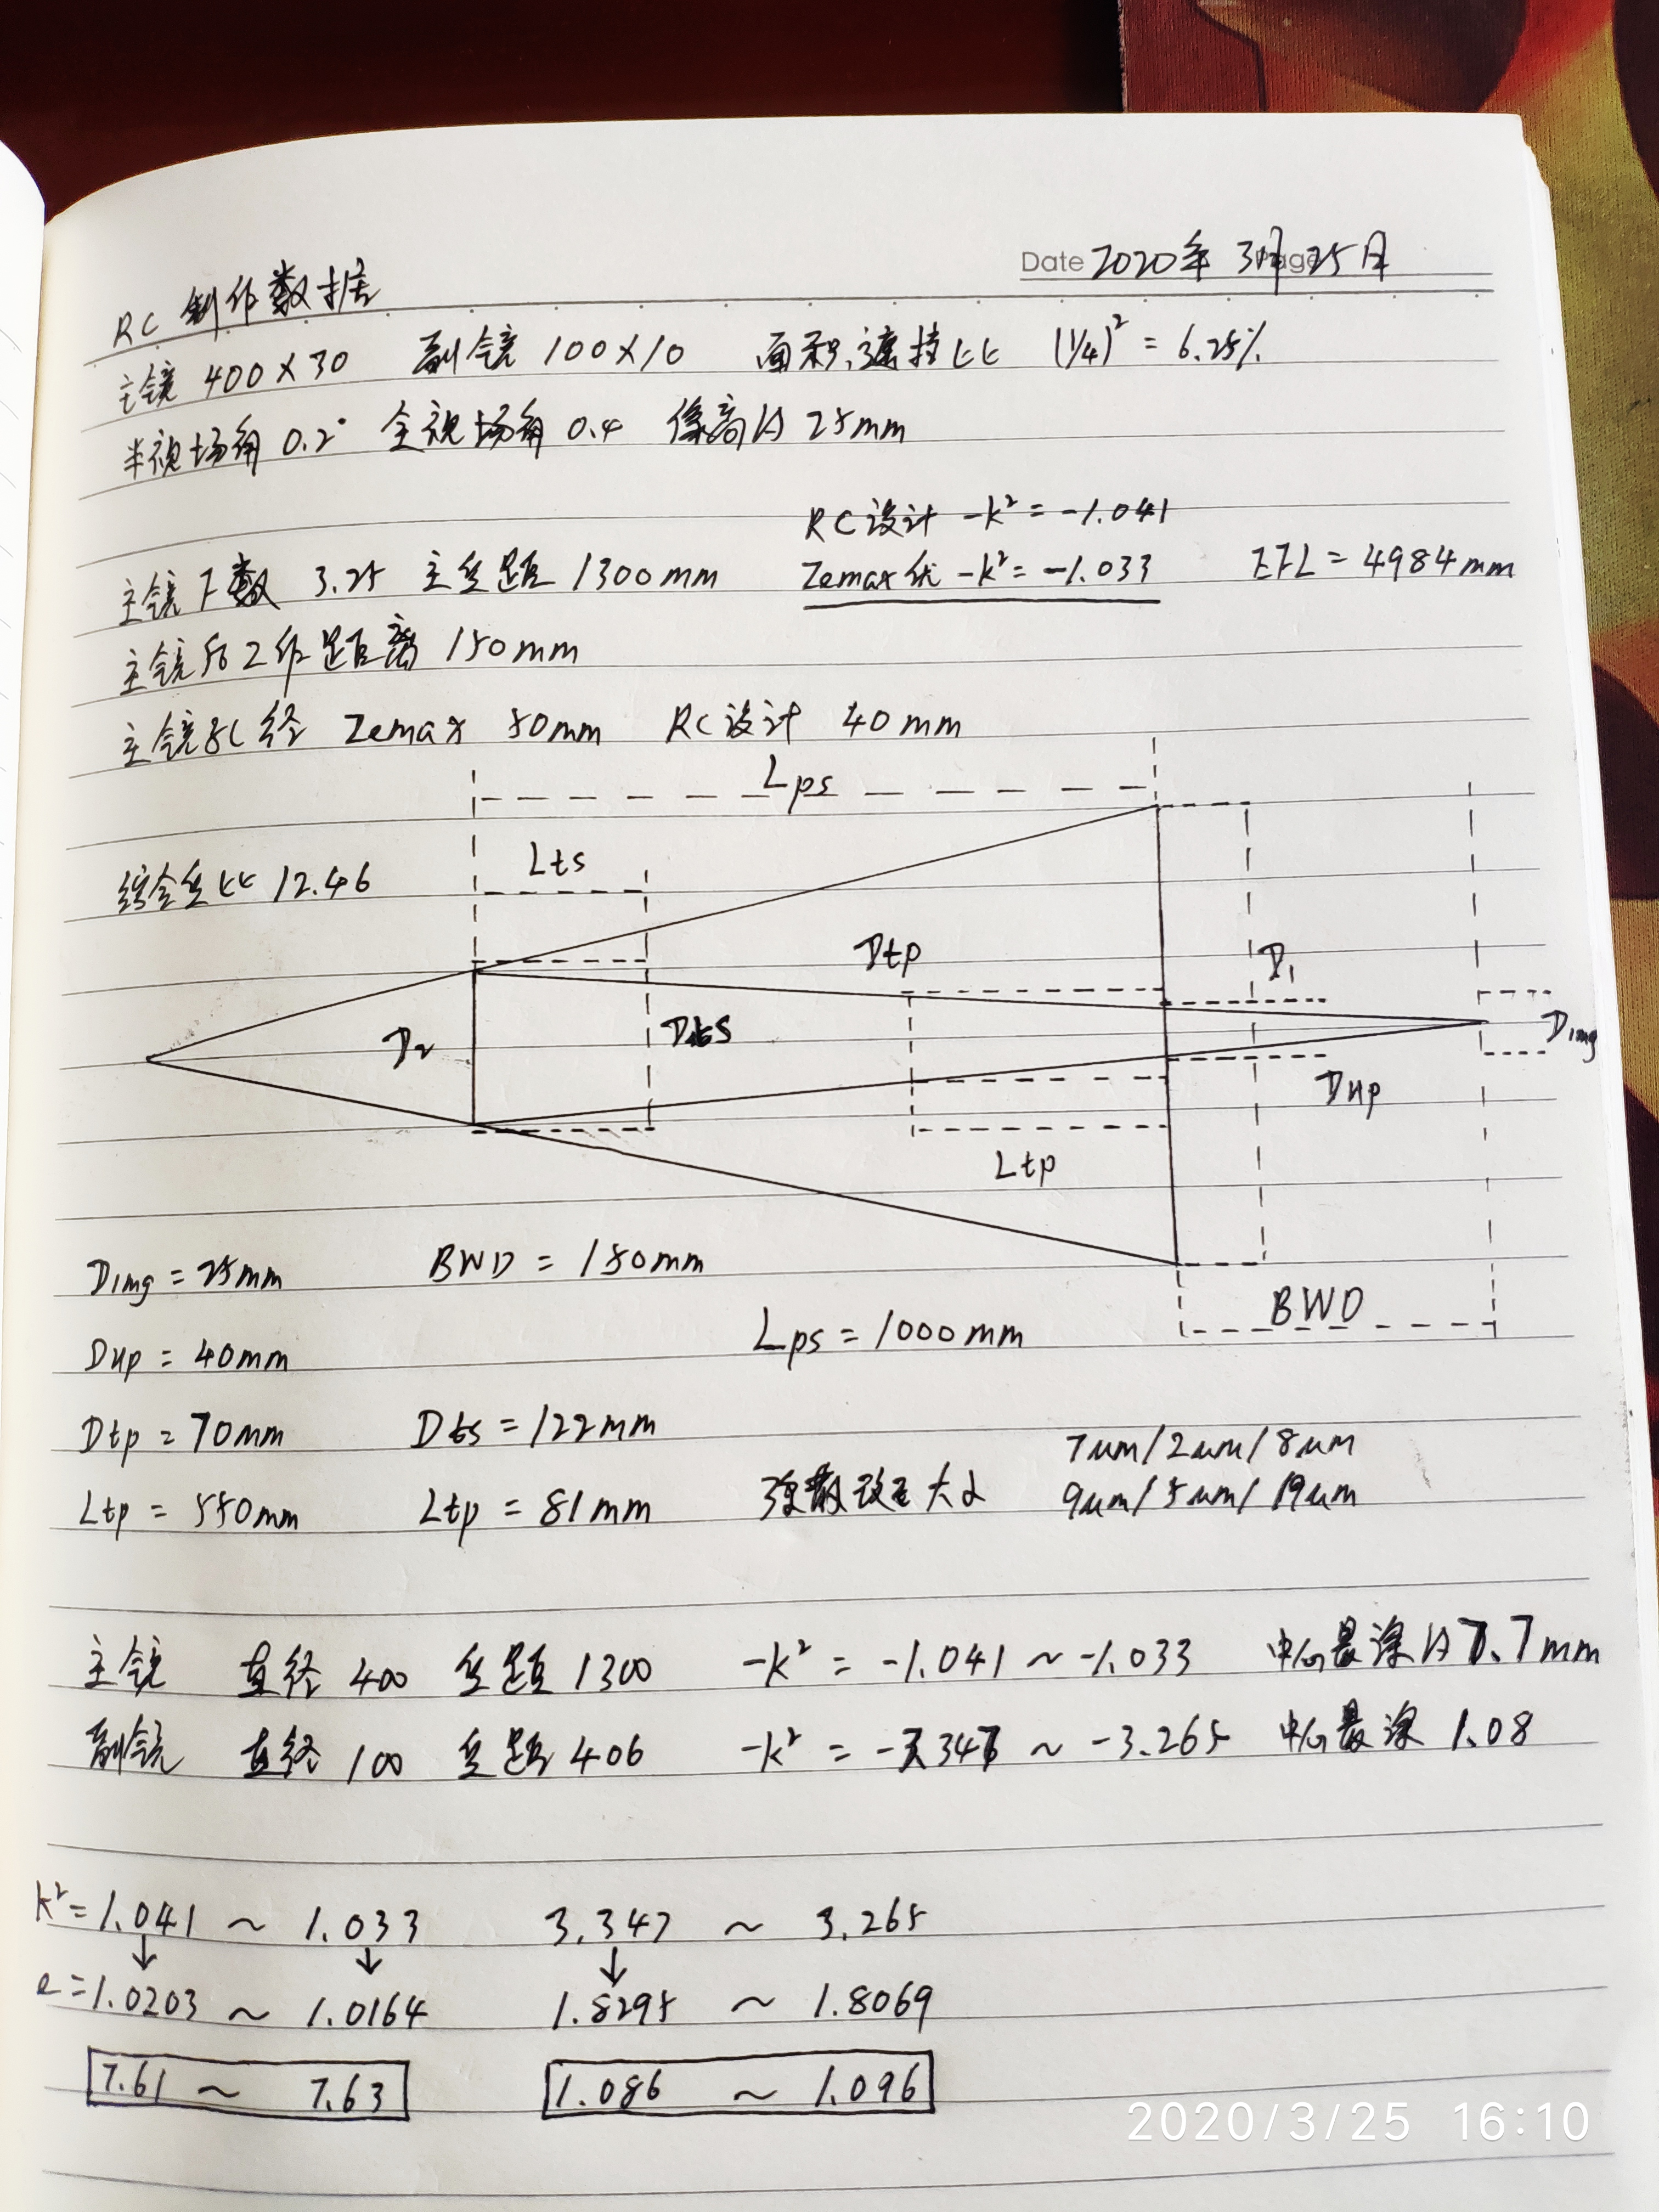 Date 2020年 3月25日
RC 制作数据
主镜 400×30 副镜 100×10 面积遮挡比 (1/4)² = 6.25%
半视场角 0.2° 全视场角 0.4 像高为 25mm
RC设计 -k² = -1.041
主镜F数 3.25 主焦距 1300mm Zemax优 -k² = -1.033 EFL = 4984mm
主镜后工作距离 150mm
主镜孔径 Zemax 50mm RC设计 40mm
Lps
综合焦比 12.46
Lts
Dtp
D₁
D₂
Dts
Dimg
Dup
Ltp
BWD
Dimg = 25mm BWD = 150mm
Lps = 1000mm
Dup = 40mm
Dtp = 70mm Dts = 122mm
7um/2um/8um
Ltp = 550mm Ltp = 81mm 弥散斑大小 9um/5um/19um
主镜 直径 400 焦距 1300 -k² = -1.041 ~ -1.033 中心最深为 7.7mm
副镜 直径 100 焦距 406 -k² = -3.347 ~ -3.265 中心最深 1.08
k² = 1.041 ~ 1.033 3.347 ~ 3.265
↓ ↓ ↓
e = 1.0203 ~ 1.0164 1.8295 ~ 1.8069
7.61 ~ 7.63 1.086 ~ 1.096
2020/3/25 16:10